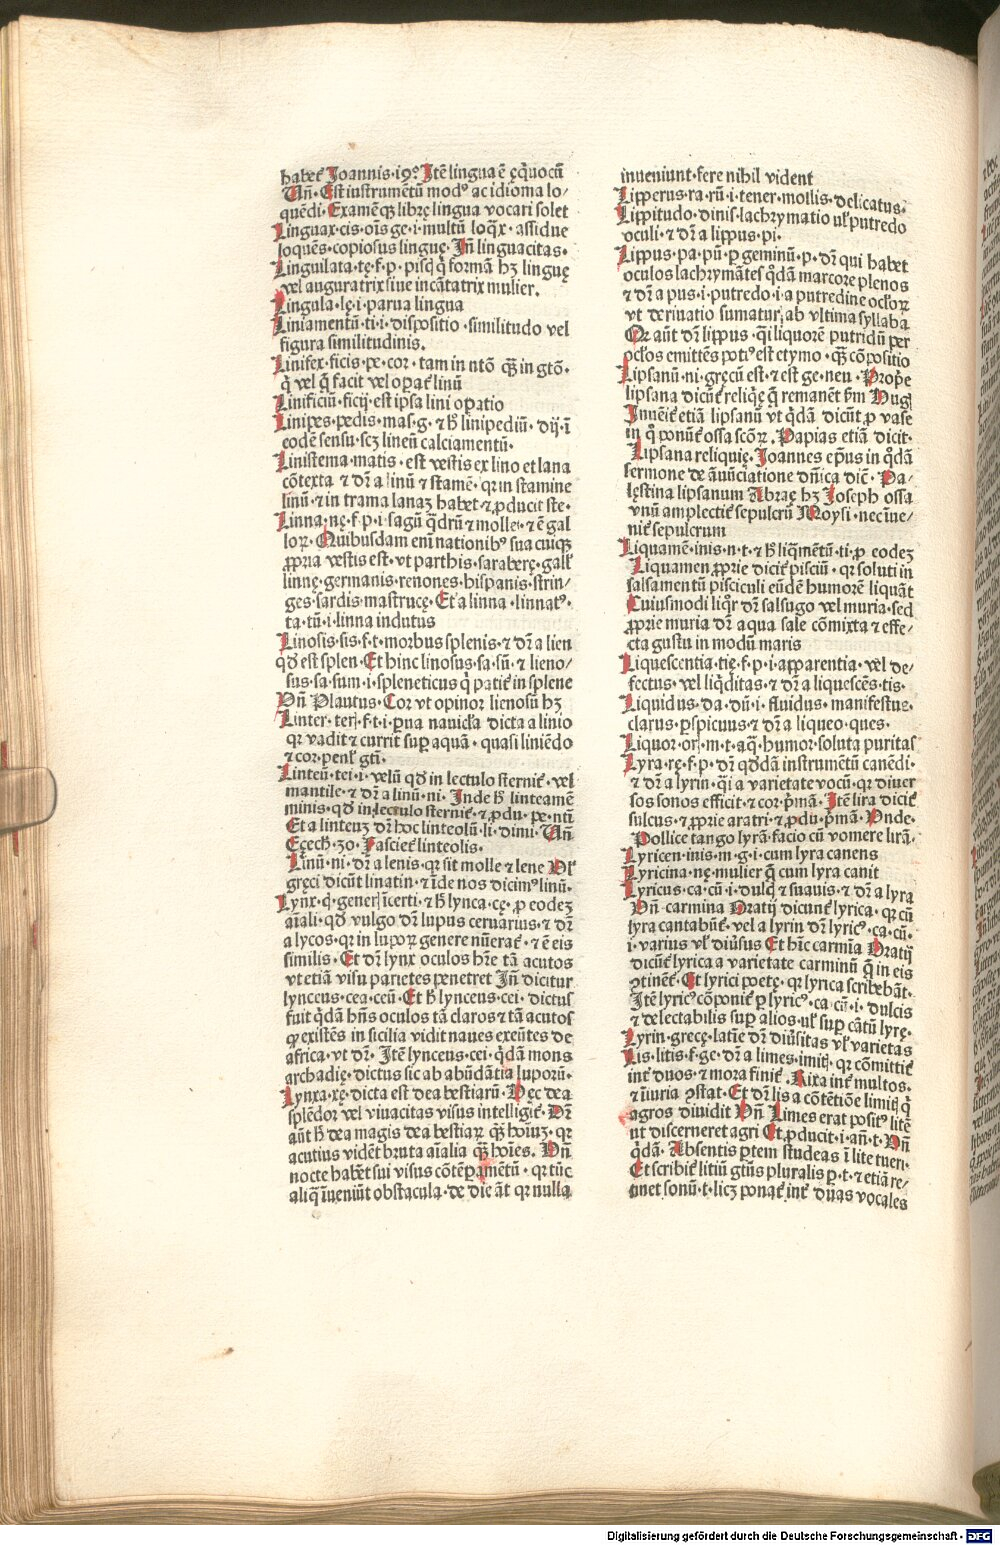 habet᷑ Joannis·19? Itē lingua ē ęq̇uocū
Uñ· Est instrumētū modꝰ ac idioma lo/
quēdi· Examēqꝫ librę lingua vocari solet
Linguax·cis·oīs ge·i·multū loq̄x·assidue
loquēs·copiosus linguę· Iñ linguacitas·
Linguilata·tę·f·p·pisq̇ q̇ formā hꝫ linguę
vel auguratrix siue incātatrix mulier.
Lingula·lę·i·parua lingua
Liniamentū·ti·i·dispositio·similitudo vel
figura similitudinis.
Linifex·ficis·pe·cor·tam in ntō qꝫ̄ in gtō·
q̇ vel q̄ facit vel oꝑat᷑ linū
Linificiū·ficij·est ipsa lini oꝑatio
Linipes·pedis·mas·g·⁊ h̄ linipediū·dij·ī
eodē sensu·scꝫ lineū calciamentū·
Linistema·matis·est vestis ex lino et lana
cōtexta ⁊ dr̄ a linū ⁊ stamē·qr in stamine
linū·⁊ in trama lanaꝫ habet·⁊ ꝓducit ste·
Linna·nę·f·p·i·sagū q̄drū ⁊ molle·⁊ ē gal
loꝝ· Quibusdam eni nationibꝰ sua cuiqꝫ
ꝓpria vestis est·vt parthis·saraberę·gall᷑
linnę·germanis·renones·hispanis·strin/
ges·sardis·mastrucę· Et a linna·linnatꝰ·
ta·tū·i·linna indutus
Linosis·sis·f·t·morbus splenis·⁊ dr̄ a lien
qď est splen· Et hinc linosus·sa·sū·⁊ lieno/
sus·sa·sum·i·spleneticus q̇ patit᷑ in splene
Vñ Plautus· Cor vt opinor lienosū hꝫ
Linter·ter·f·t·i·ꝑua nauicl᷑a dicta a linio
qr vadit ⁊ currit suꝑ aquā·quasi liniēdo
⁊ cor·penl᷑ gtī·
Linteū·tei·i·velū qď in lectulo sternit᷑·vel
mantile·⁊ dr̄ a linū·ni· Inde h̄ linteamē
minis·qď in lectulo sternit᷑·⁊ ꝓdu·pe·ntī
Et a linteuꝫ dr̄ hoc linteolū·li·dimi· Uñ
Ecech·30· Fasciet᷑ linteolis·
Linū·ni·dr̄ a lenis·qr sit molle ⁊ lene Vl᷑
gręci dicūt linatin·⁊ īde nos dicimꝰ linū·
Lynx·q̇·generꝭ īcerti·⁊ h̄ lynca·cę·ꝓ eodeꝫ
aīali·qď vulgo dr̄ lupus ceruarius·⁊ dr̄
a lycos·qr in lupoꝝ genere nūerat᷑·⁊ ē eis
similis· Et dr̄ lynx oculos hr̄e tā acutos
vt etiā visu parietes penetret Iñ dicitur
lynceus·cea·ceū· Et h̄ lynceus·cei·dictus
fuit q̇dā hñs oculos tā claros ⁊ tā acutos
qꝙ existēs in sicilia vidit naues exeūtes de
africa·vt dr̄· Itē lynceus·cei·q̇dā mons
archadię·dictus sic ab abūdātia luporū·
Lynxa·xę·dicta est dea bestiarū· Hęc dea
splēdor vel viuacitas visus intelligit᷑· Dr̄
aūt h̄ dea magis dea bestiaꝝ qꝫ̄ hoīuꝫ·qr
acutius vidēt bruta aīalia qꝫ̄ hoīes· Vñ
nocte habēt sui visus cōtēꝑamētū·qr tūc
aliq̄ īueniūt obstacula·de die āt qr nulla
inueniunt·fere nihil vident
Lipperus·ra·rū·i·tener·mollis·delicatus·
Lippitudo·dinis·lachrymatio vl᷑ putredo
oculi·⁊ dr̄ a lippus·pi·
Lippus·pa·pū·ꝑ geminū·p·dr̄ qui habet
oculos lachrymātes q̇dā marcore plenos
⁊ dr̄ a pus·i·putredo·i·a putredine ocl᷑oꝝ
vt deriuatio sumatur, ab vltima syllaba
Qr aūt dr̄ lippus·q̇i liquorē putridū per
ocl᷑os emittēs potiꝰ est etymo·qꝫ̄ cōpositio
Lipsanū·ni·gręcū est·⁊ est ge·neu· Prop̄e
lipsana dicūt᷑ reliq̇ę q̄ remanēt ẜm Hug͛
Inuēit᷑ etiā lipsanū vt q̇dā dicūt ꝓ vase
in q̊ ponūt᷑ ossa sc̄oꝝ· Papias etiā dicit·
Lipsana reliquię· Joannes ep̄us in q̊dā
sermone de ānūciatione dñica dic̄· Pa/
lęstina lipsanum Abraę hꝫ Joseph ossa
vnū amplectit᷑ sepulcrū Moysi·nec īue/
nit᷑ sepulcrum
Liquamē·inis·n·t·⁊ h̄ liq̄mētū·ti·ꝓ eodeꝫ
Liquamen ꝓprie dicit᷑ pisciū·qr soluti in
salsamentū pisciculi eūdē humorē liquāt
Cuiusmodi liq̊r dr̄ salsugo vel muria·sed
ꝓprie muria dr̄ aqua sale cōmixta ⁊ effe/
cta gustu in modū maris
Liquescentia·tię·f·p·i·apparentia·vel de/
fectus·vel liq̇ditas·⁊ dr̄ a liquescēs·tis·
Liquidus·da·dū·i·fluidus·manifestus·
clarus·ꝑspicuus ⁊ dr̄ a liqueo·ques·
Liquor·orꝭ·m·t·aq̄·humor·soluta puritas
Lyra·rę·f·p·dr̄ qďdā instrumētū canēdi·
⁊ dr̄ a lyrin·q̇i a varietate vocū·qr diuer
sos sonos efficit·⁊ cor·ṗmā· Itē lira dicit᷑
sulcus·⁊ ꝓprie aratri·⁊ ꝓdu·ṗmā· Vnde·
Pollice tango lyrā·facio cū vomere lirā·
Lyricen·inis·m·g·i·cum lyra canens
Lyricina·nę·mulier q̄ cum lyra canit
Lyricus·ca·cū·i·dulcꝭ ⁊ suauis·⁊ dr̄ a lyra
Vñ carmina Oratij dicunt᷑ lyrica·qr cū
lyra cantabūt᷑·vel a lyrin dr̄ lyricꝰ·ca·cū·
i·varius vl᷑ diūsus Et hīc carmīa Oratij
dicūt᷑ lyrica a varietate carminū q̄ in eis
ꝯtinēt᷑· Et lyrici poetę·qr lyrica scribebāt·
Itē lyricꝰ cōponit᷑ ꝑ lyricꝰ·ca·cū·i·dulcis
⁊ delectabilis suꝑ alios·vl᷑ suꝑ cātū lyrę·
Lyrin·gręcę·latīe dr̄ diūsitas vl᷑ varietas
Lis·litis·f·ge·dr̄ a limes·imitꝭ·qr cōmittit᷑
int᷑ duos·⁊ mora finit᷑· Rixa int᷑ multos·
⁊ īiuria ꝯstat· Et dr̄ lis a cōtētiōe limitꝭ q̇
agros diuidit Vñ Limes erat positꝰ litē
ut discerneret agri Et ꝓducit·i·añ·t· Vñ
q̇dā· Absentis ꝑtem studeas ī lite tueri·
Et scribit᷑ litiū gtūs pluralis ꝑ·t·⁊ etiā re/
tinet sonū·t·licꝫ ponat᷑ int᷑ duas vocales
Digitalisierung gefördert durch die Deutsche Forschungsgemeinschaft - DFG